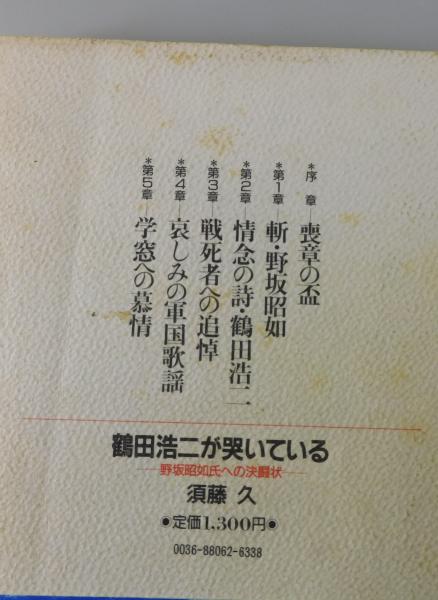 *序 章―喪章の盃
*第1章―斬・野坂昭如
*第2章―情念の詩・鶴田浩二
*第3章―戦死者への追悼
*第4章―哀しみの軍国歌謡
*第5章―学窓への慕情
鶴田浩二が哭いている
―野坂昭如氏への決闘状―
須藤 久
●定価1,300円●
0036-88062-6338